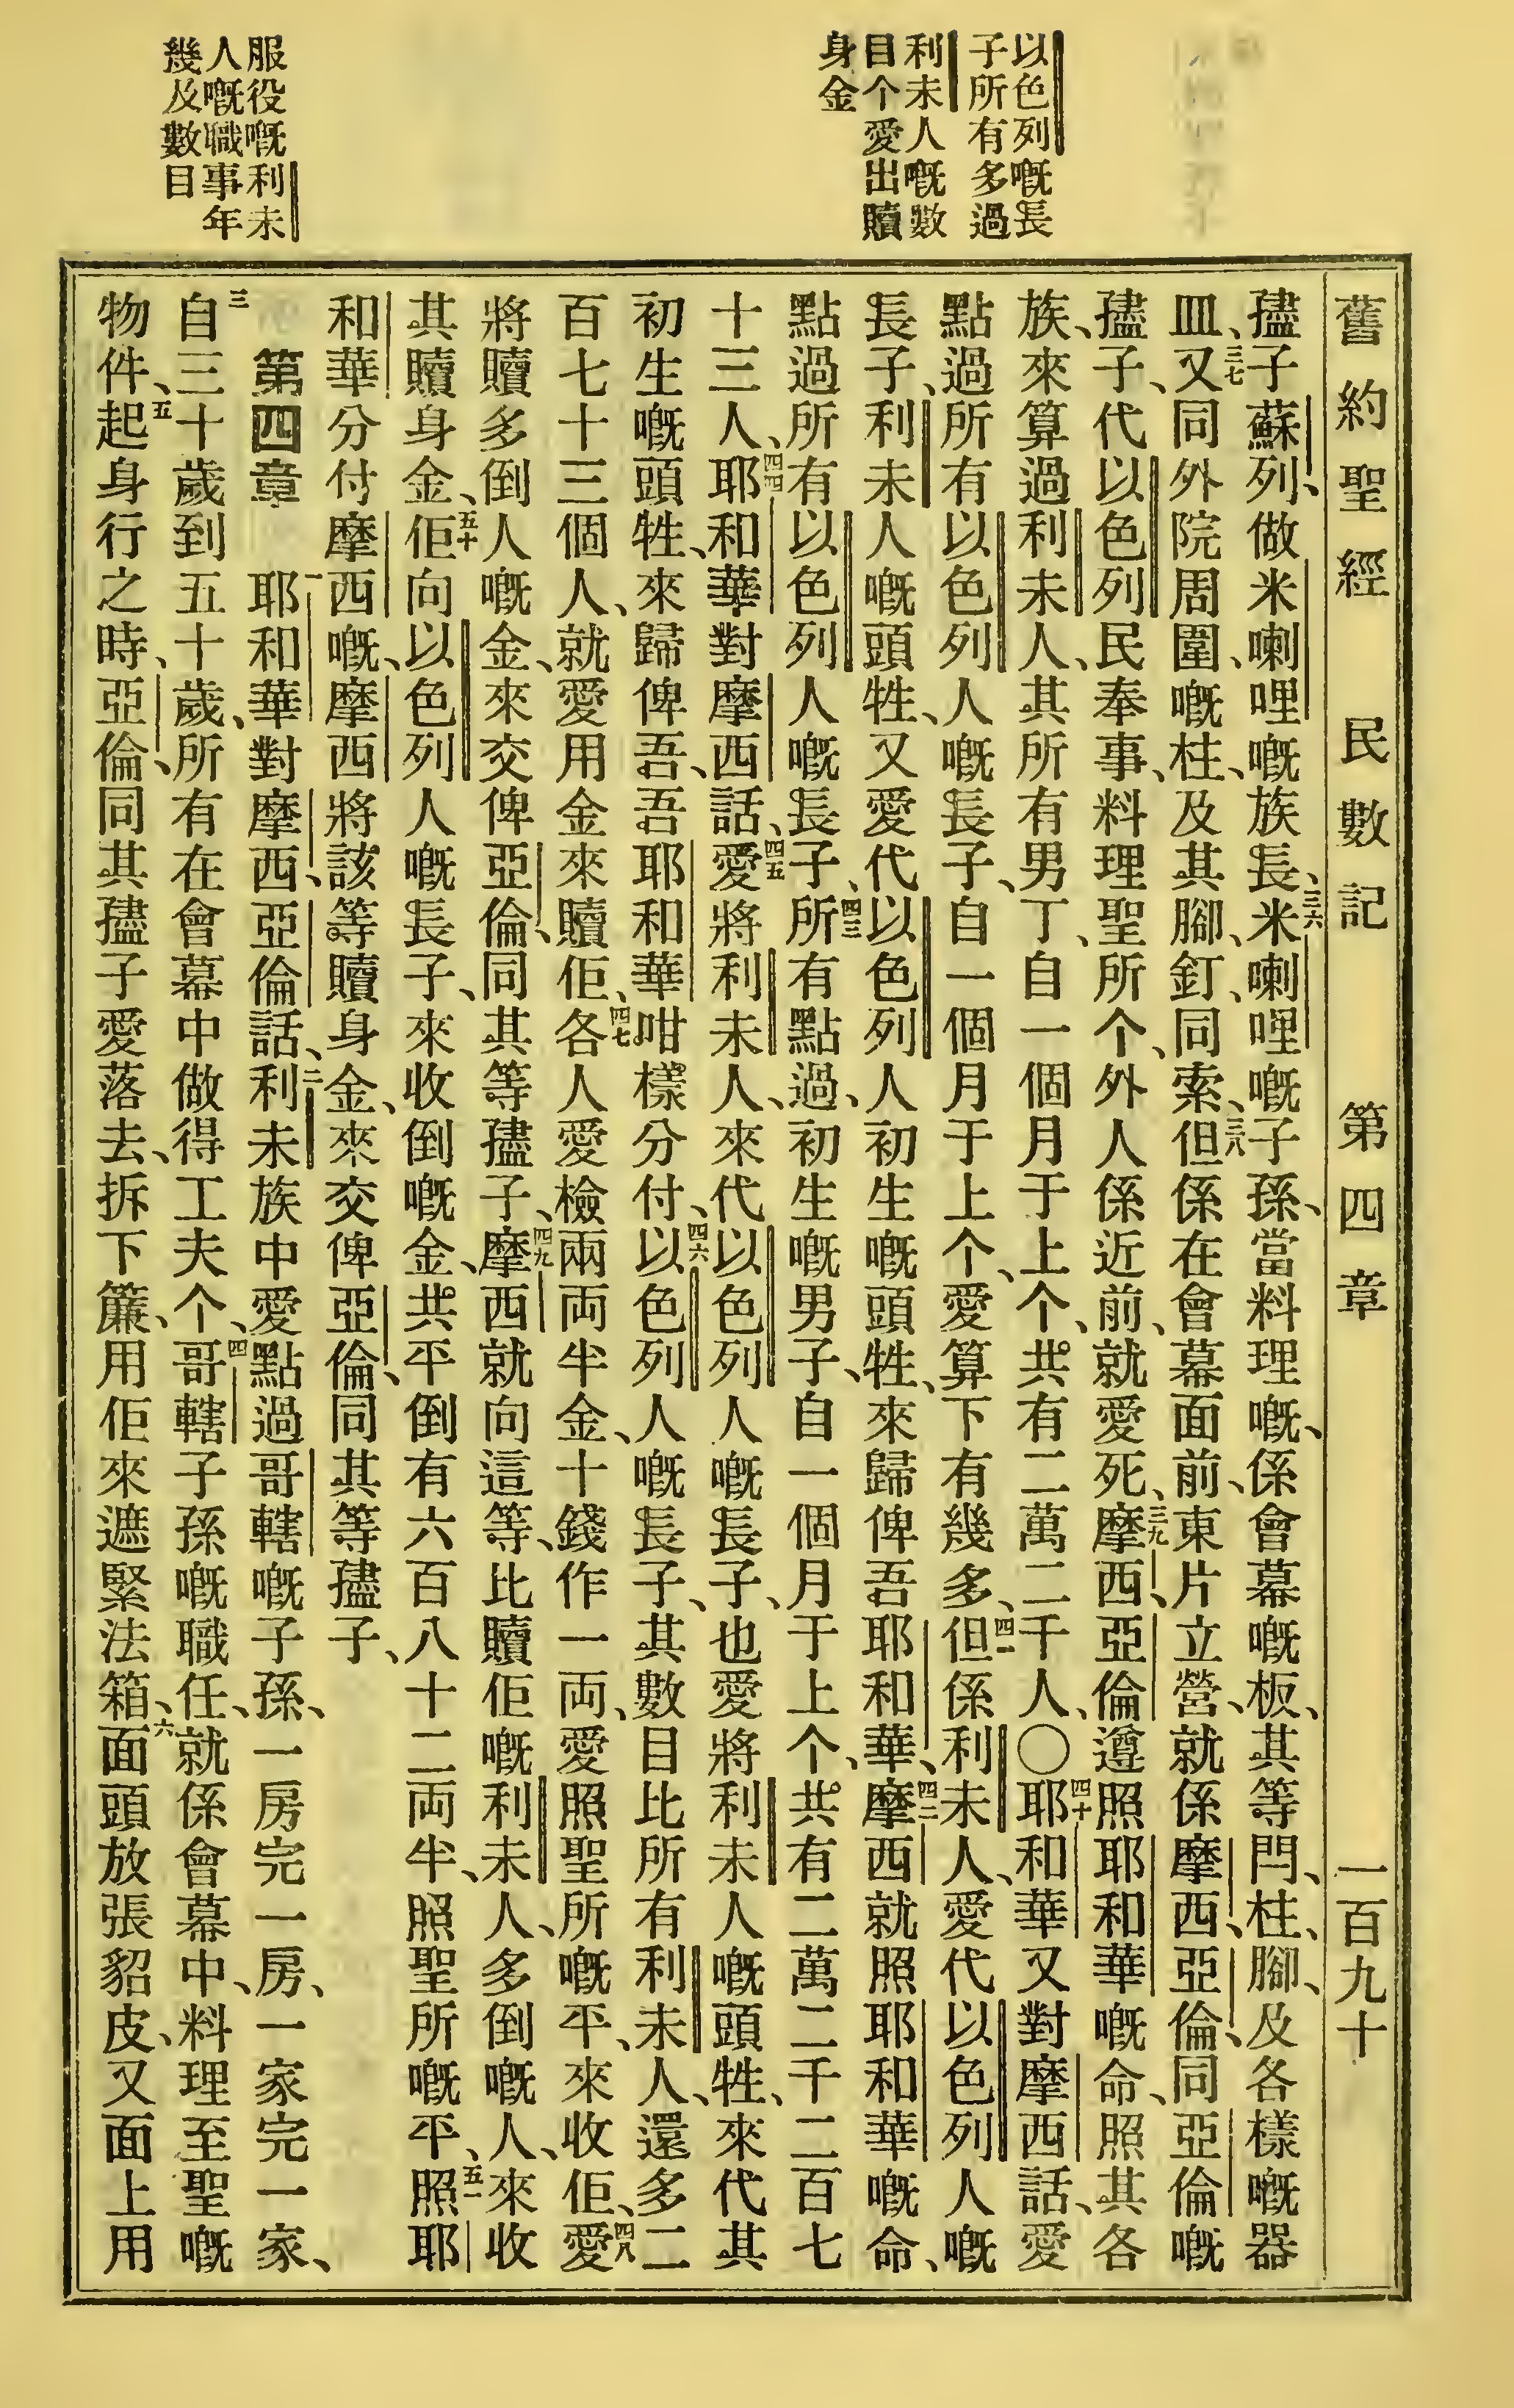 以色列嘅長
子所有多過
利未人嘅數
目个愛出贖
身金
服役嘅利未
人嘅職事年
幾及數目
舊約聖經 民數記 第四章 一百九十
孻子蘇列、做米喇哩嘅族長、三六米喇哩嘅子孫、當料理嘅、係會幕嘅板、其等閂、柱、腳、及各樣嘅器
皿、三七又同外院周圍、嘅柱、及其腳、釘、同索、三八但係在會幕面前、東片立營、就係摩西、亞倫、同亞倫嘅
孻子、代以色列民奉事、料理聖所个、外人係近前、就愛死、三九摩西、亞倫遵照耶和華嘅命、照其各
族、來算過利未人、其所有男丁、自一個月于上个、共有二萬二千人、〇四十耶和華又對摩西話、愛
點過所有以色列人嘅長子、自一個月于上个、愛算下有幾多、四一但係利未人、愛代以色列人嘅
長子、利未人嘅頭牲、又愛代以色列人初生嘅頭牲、來歸俾吾耶和華、四二摩西就照耶和華嘅命、
點過所有以色列人嘅長子、四三所有點過、初生嘅男子、自一個月于上个、共有二萬二千二百七
十三人、四四耶和華對摩西話、四五愛將利未人、來代以色列人嘅長子、也愛將利未人嘅頭牲、來代其
初生嘅頭牲、來歸俾吾、吾耶和華咁樣分付、四六以色列人嘅長子、其數目比所有利未人、還多二
百七十三個人、就愛用金來贖佢、四七各人愛檢兩両半金、十錢作一両、愛照聖所嘅平、來收佢、四八愛
將贖多倒人嘅金、來交俾亞倫、同其等孻子、四九摩西就向這等、比贖佢嘅利未人、多倒嘅人、來收
其贖身金、五十佢向以色列人嘅長子、來收倒嘅金、共平倒有六百八十二両半、照聖所嘅平、五一照耶
和華分付摩西嘅、摩西將該等贖身金、來交俾亞倫、同其等孻子、
第四章 一耶和華對摩西、亞倫話、二利未族中愛點過哥轄嘅子孫、一房完一房、一家完一家、
三自三十歲到五十歲、所有在會幕中做得工夫个、四哥轄子孫嘅職任、就係會幕中、料理至聖嘅
物件、五起身行之時、亞倫、同其孻子愛落去、拆下簾、用佢來遮緊法箱、六面頭放張貂皮、又面上用